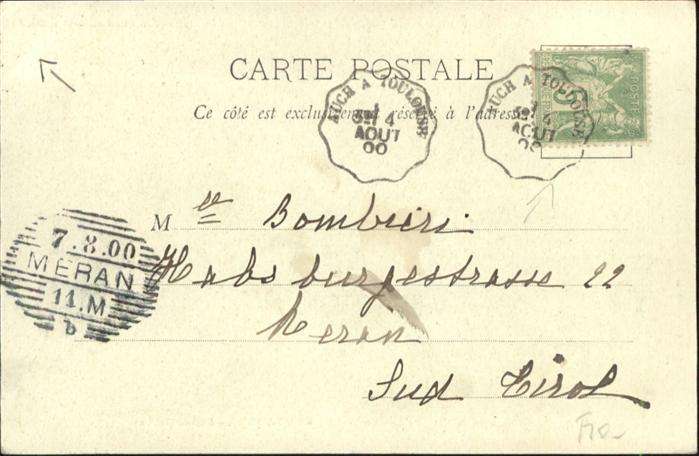 CARTE POSTALE
Ce côté est exclusivement réservé à l'adresse
AUCH A TOULOUSE
4
AOUT
00
AUCH A TOULOUSE
4
AOUT
00
Mlle Bombieri
7.8.00
MERAN
11.M
b
Habsburgestrasse 22
Meran
Sud Tirol